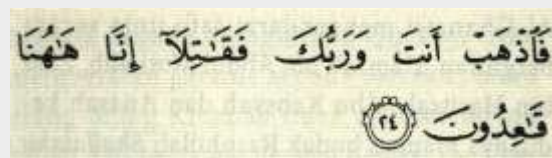 فَٱذْهَبْ أَنتَ وَرَبُّكَ فَقَـٰتِلَآ إِنَّا هَـٰهُنَا
قَـٰعِدُونَ ٢٤